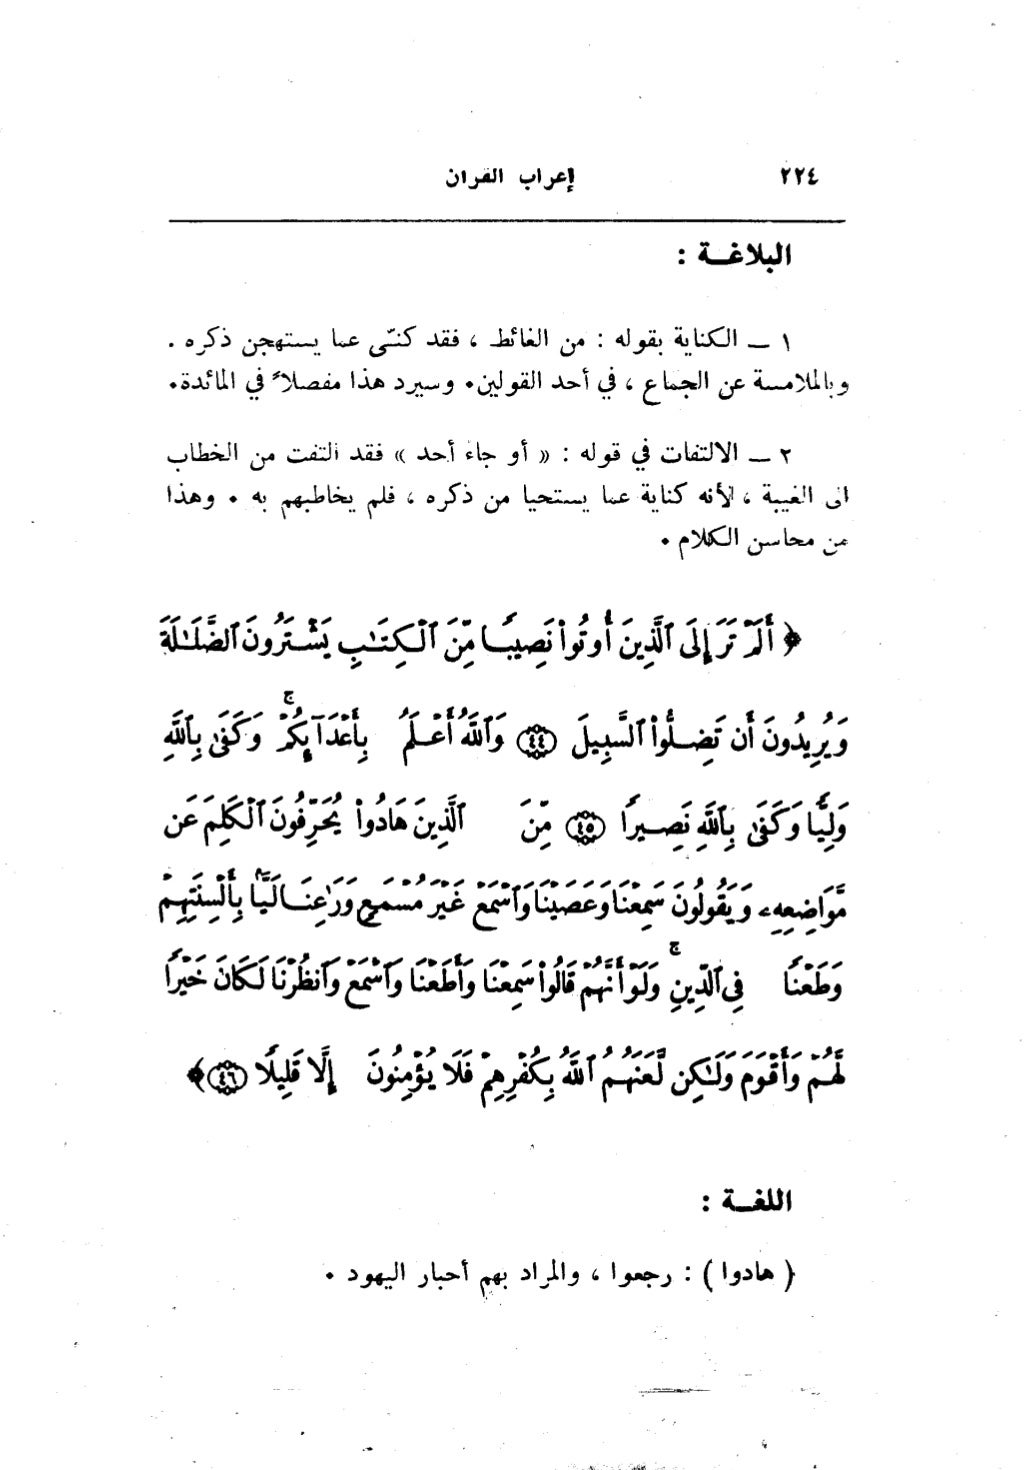 ٢٢٤ إعراب القرآن
البلاغــة :
١ ــ الكناية بقوله : من الغائط ، فقد كنّى عما يستهجن ذكره .
وبالملامسة عن الجماع ، في أحد القولين. وسيرد هذا مفصلاً في المائدة.
٢ ــ الالتفات في قوله : « أو جاء أحد » فقد التفت من الخطاب
الى الغيبة ، لأنه كناية عما يستحيا من ذكره ، فلم يخاطبهم به . وهذا
من محاسن الكلام .
﴿ أَلَمْ تَرَ إِلَى ٱلَّذِينَ أُوتُوا۟ نَصِيبًا مِّنَ ٱلْكِتَـٰبِ يَشْتَرُونَ ٱلضَّلَـٰلَةَ
وَيُرِيدُونَ أَن تَضِلُّوا۟ ٱلسَّبِيلَ ﴿٤٤﴾ وَٱللَّهُ أَعْلَمُ بِأَعْدَآئِكُمْ ۚ وَكَفَىٰ بِٱللَّهِ
وَلِيًّا وَكَفَىٰ بِٱللَّهِ نَصِيرًا ﴿٤٥﴾ مِّنَ ٱلَّذِينَ هَادُوا۟ يُحَرِّفُونَ ٱلْكَلِمَ عَن
مَّوَاضِعِهِۦ وَيَقُولُونَ سَمِعْنَا وَعَصَيْنَا وَٱسْمَعْ غَيْرَ مُسْمَعٍ وَرَٰعِنَا لَيًّۢا بِأَلْسِنَتِهِمْ
وَطَعْنًا فِى ٱلدِّينِ ۚ وَلَوْ أَنَّهُمْ قَالُوا۟ سَمِعْنَا وَأَطَعْنَا وَٱسْمَعْ وَٱنظُرْنَا لَكَانَ خَيْرًا
لَّهُمْ وَأَقْوَمَ وَلَـٰكِن لَّعَنَهُمُ ٱللَّهُ بِكُفْرِهِمْ فَلَا يُؤْمِنُونَ إِلَّا قَلِيلًا ﴿٤٦﴾ ﴾
اللغــة :
( هادوا ) : رجعوا ، والمراد بهم أحبار اليهود .